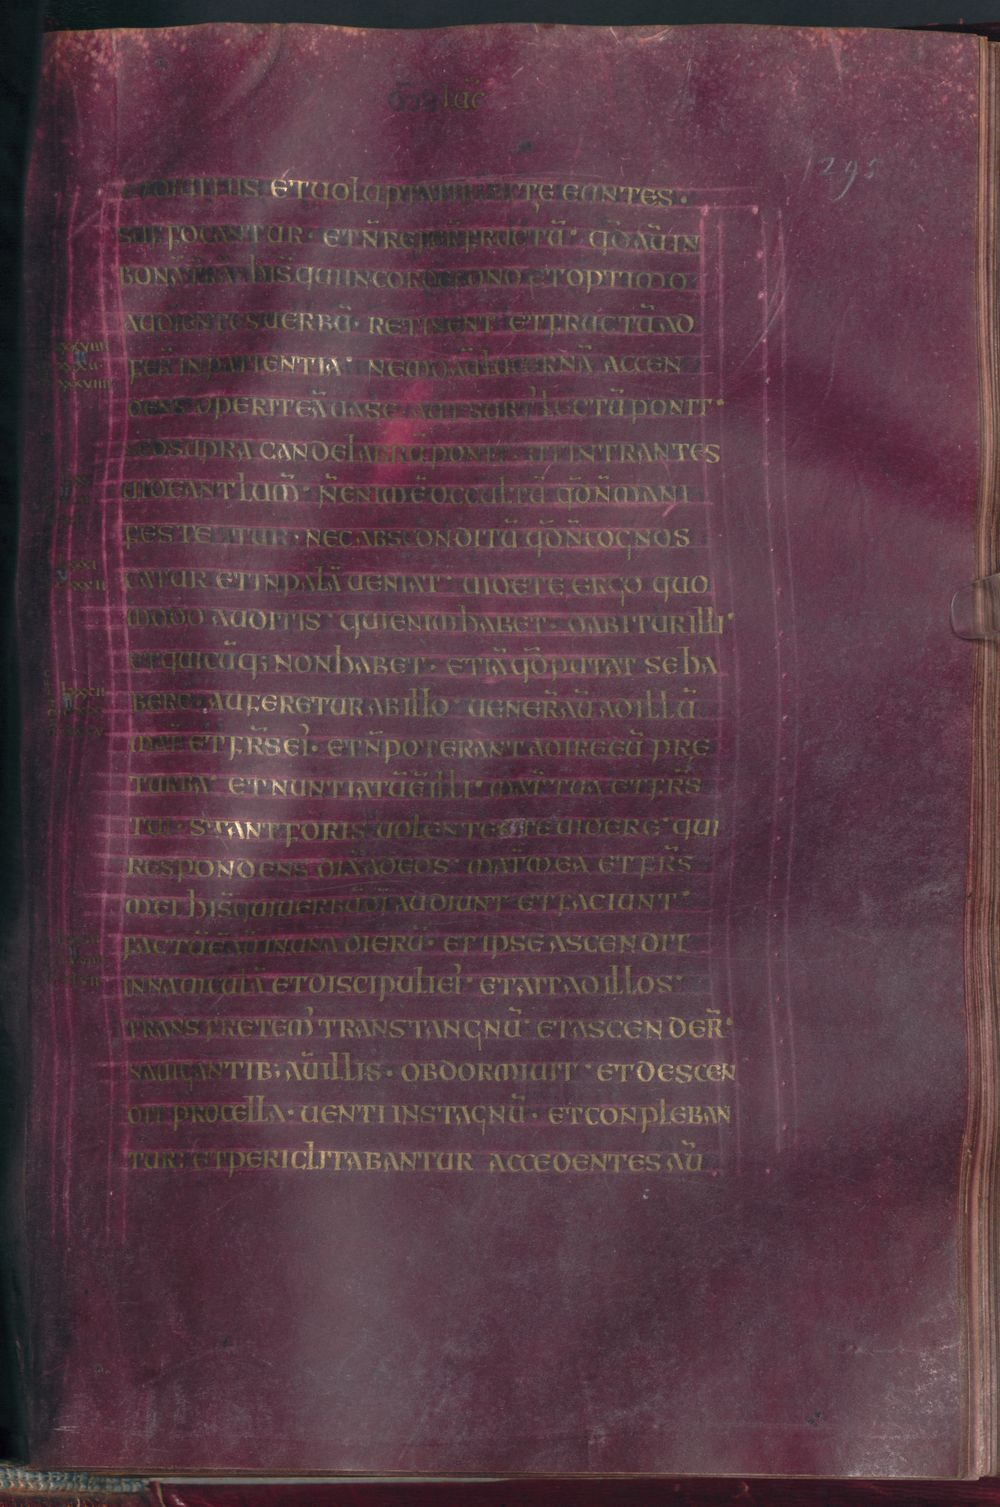 luc
295
diuitiis et uoluptatib; uite euntes·
suffocantur· et n̄ referūt fructū· qd̄ aū in
bonā trā· his q̄ui in corde bono et optimo
audientes uerbū· retinent et fructū ad
fer̄ in patientia· nemo aū lucernā accen
dens operit eā uase aut subt lectū ponit·
sed supra candelabrū ponit· ut intrantes
uideant lum̄· n̄ enim ē occultū qd̄ n̄ mani
festetur· nec absconditū qd̄ n̄ cognos
catur et in palā ueniat· uidete ergo quo
modo auditis· qui enim habet· dabitur illi·
et quicūq; non habet· etiā qd̄ putat se ha
bere· auferetur ab illo· uener̄ aū ad illū
mat̄ et fr̄s ei'· et n̄ poterant adire eū pre
turba· et nuntiatū ē illi· mat̄ tua et fr̄s
tui· stant foris uolentes te uidere· qui
respondens dix̄ ad eos· mat̄ mea et fr̄s
mei his̄ qui uerbū dī audiunt et faciunt·
factū ē aū in una dierū· et ipse ascendit
in nauiculā et discipuli ei'· et ait ad illos·
transfretem' trans stangnū· et ascender̄·
nauigantib; aū illis· obdormiuit· et descen
dit procella· uenti in stagnū· et conpleban
tur· et periclitabantur accedentes aū